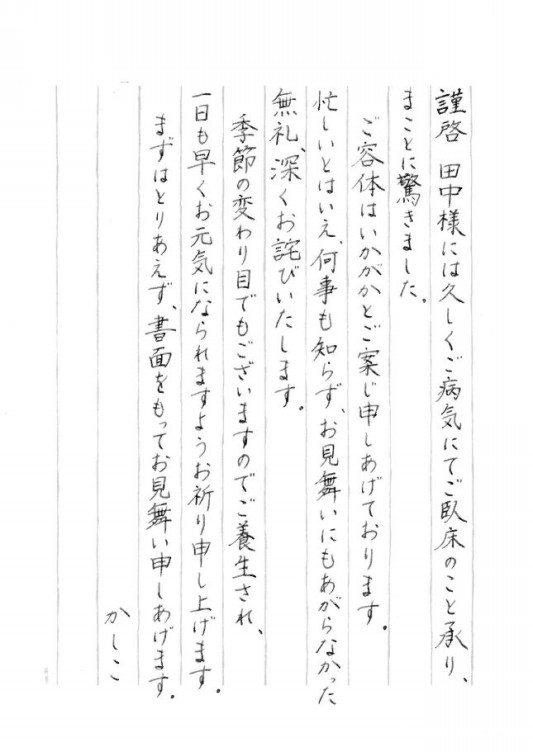 謹啓　田中様には久しくご病気にてご臥床のこと承り、
まことに驚きました。
ご容体はいかがかとご案じ申しあげております。
忙しいとはいえ、何事も知らず、お見舞いにもあがらなかった
無礼、深くお詫びいたします。
季節の変わり目でもございますのでご養生され、
一日も早くお元気になられますようお祈り申し上げます。
まずはとりあえず、書面をもってお見舞い申しあげます。
かしこ